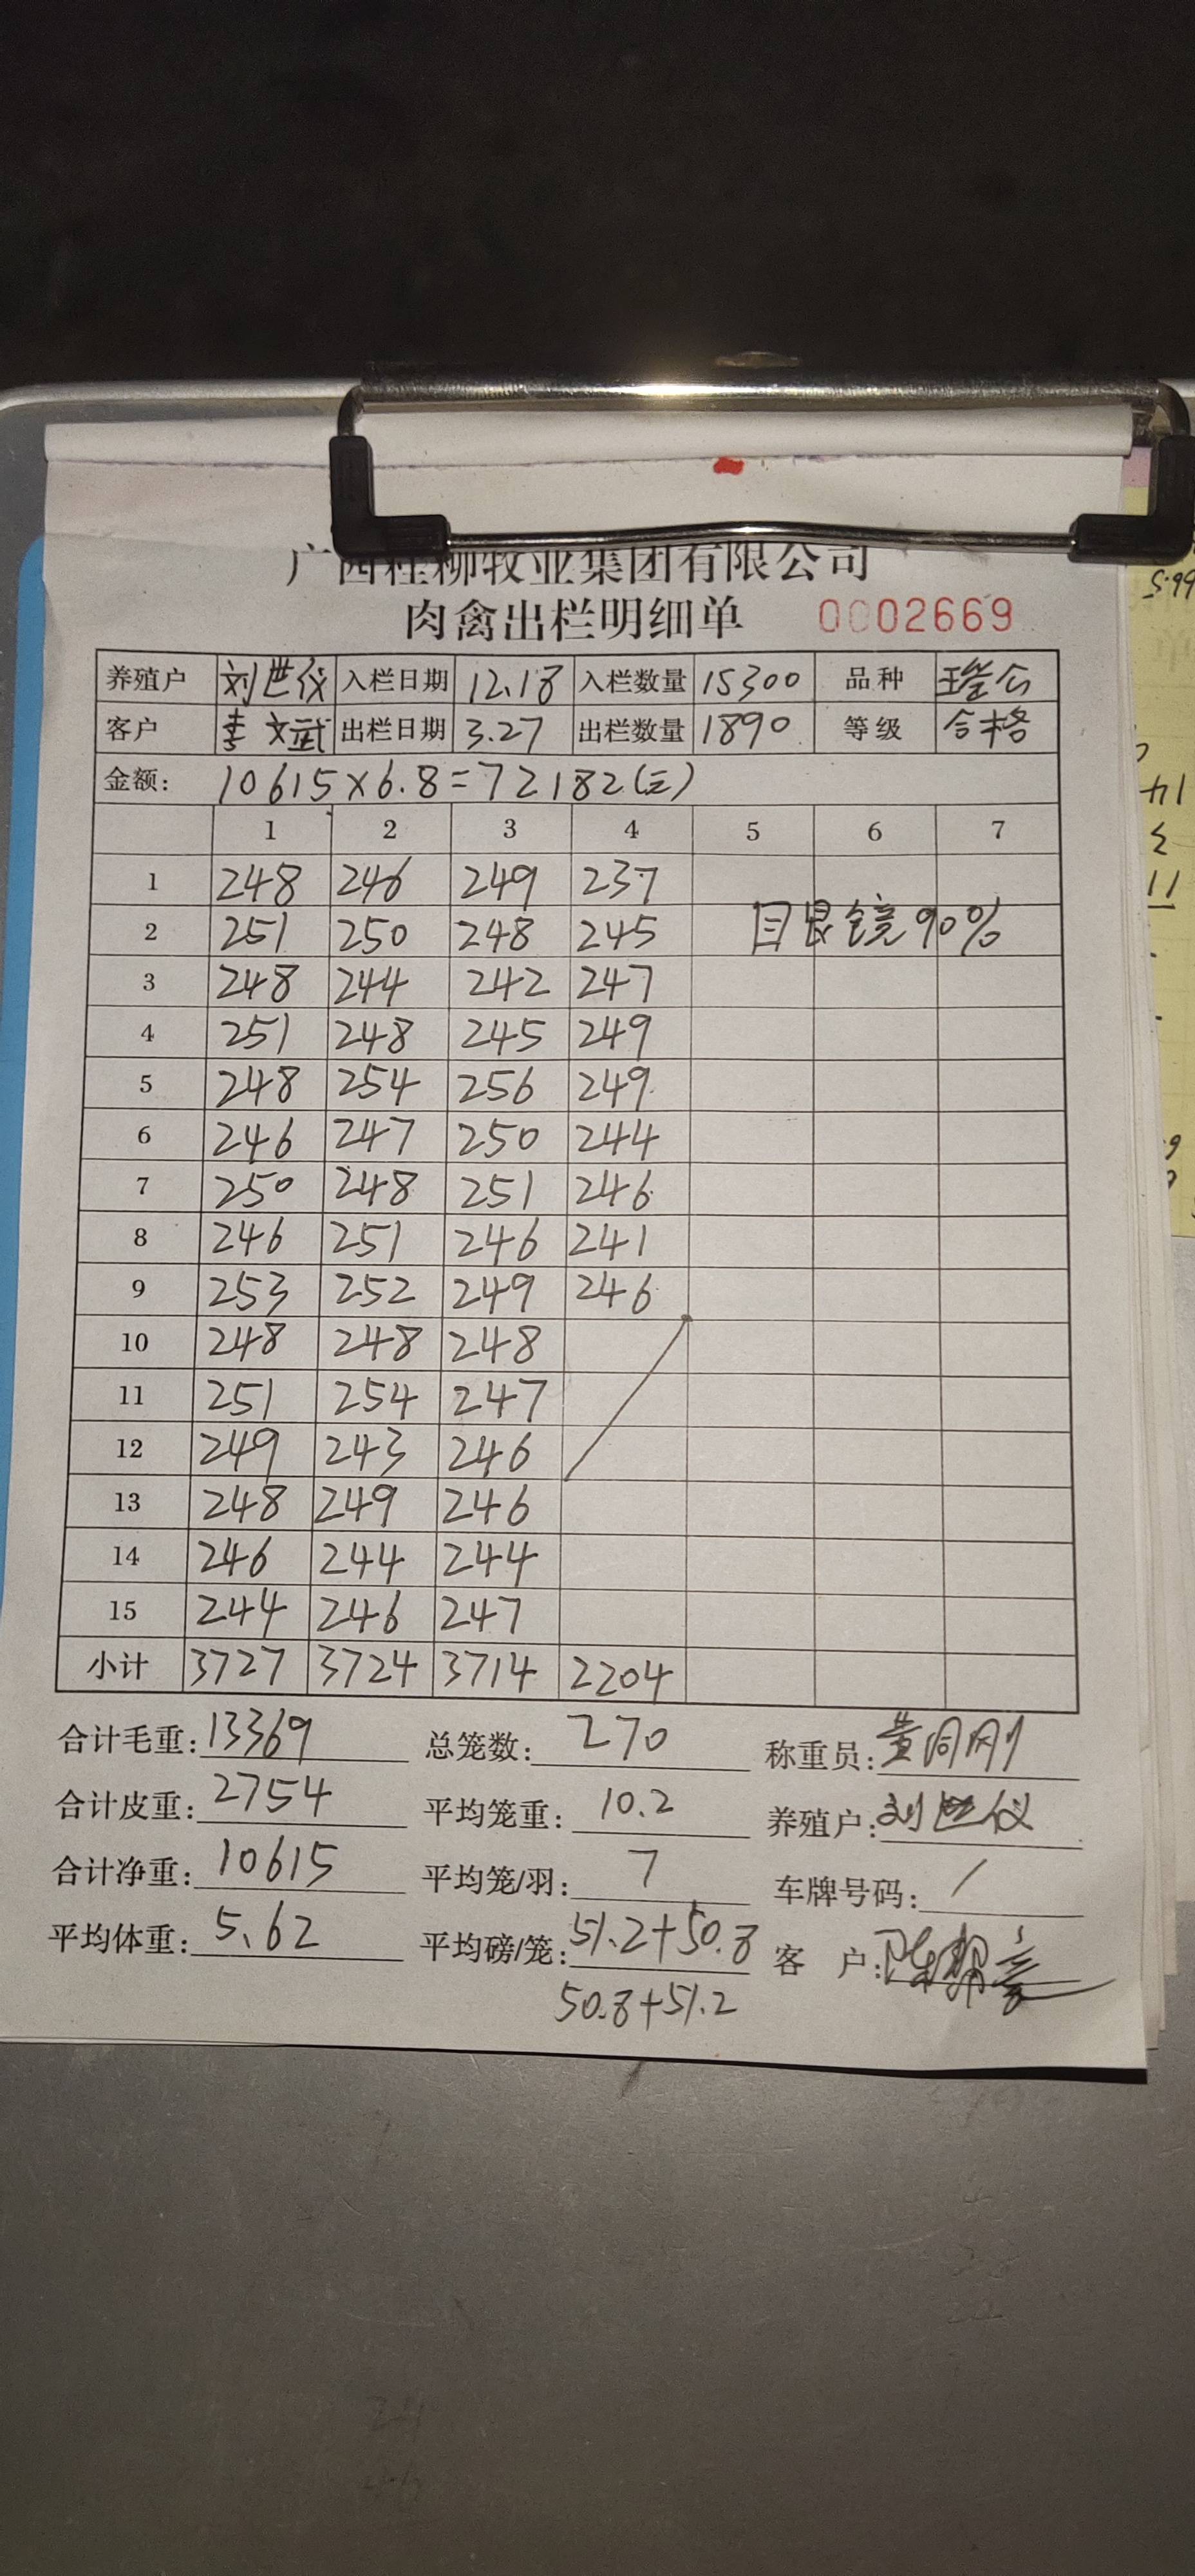 广西桂柳牧业集团有限公司
肉禽出栏明细单 0002669
养殖户 刘世仪 入栏日期 12.18 入栏数量 15300 品种 瑶公
客户 李文武 出栏日期 3.27 出栏数量 1890 等级 合格
金额: 10615×6.8=72182(元)
1 2 3 4 5 6 7
1 248 246 249 237
2 251 250 248 245 目艮镜90%
3 248 244 242 247
4 251 248 245 249
5 248 254 256 249
6 246 247 250 244
7 250 248 251 246
8 246 251 246 241
9 253 252 249 246
10 248 248 248
11 251 254 247
12 249 243 246
13 248 249 246
14 246 244 244
15 244 246 247
小计 3727 3724 3714 2204
合计毛重: 13369 总笼数: 270 称重员:
合计皮重: 2754 平均笼重: 10.2 养殖户: 刘世仪
合计净重: 10615 平均笼/羽: 7 车牌号码: /
平均体重: 5.62 平均磅/笼: 51.2+50.8 客 户:
50.8+51.2